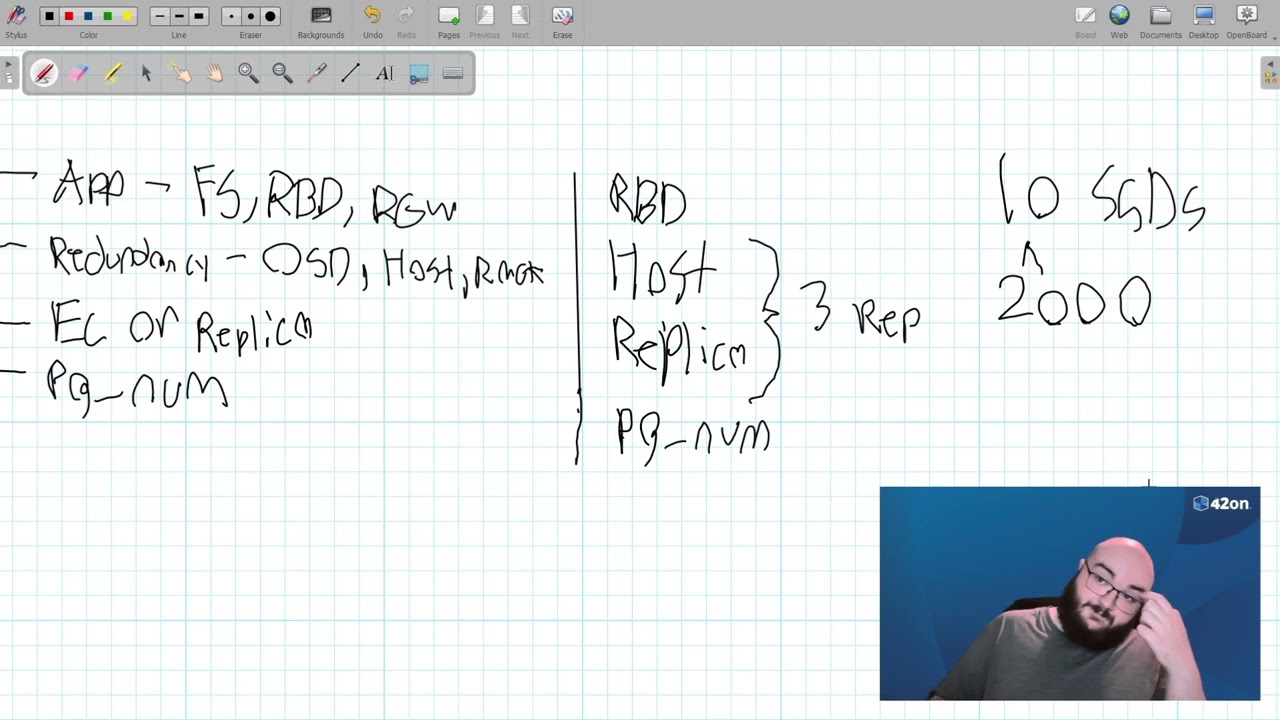 Stylus Color Line Eraser Backgrounds Undo Redo Pages Previous Next Erase Board Web Documents Desktop OpenBoard
- App - FS, RBD, RGW
- Redundancy - OSD, Host, Rack
- EC or Replica
- Pg_num
RBD
Host
Replica
3 Rep
Pg_num
10
2000
42on